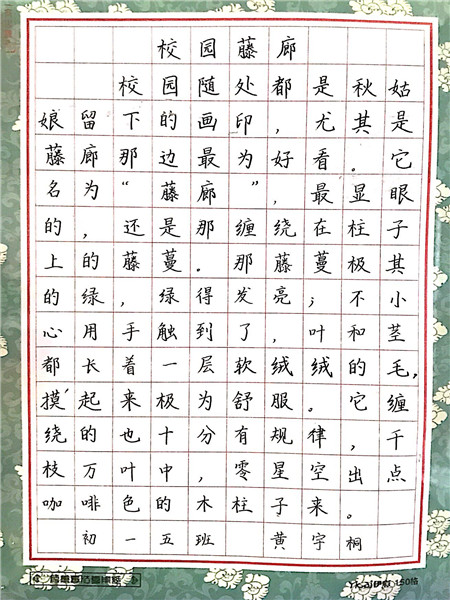 校园藤廊
校园随处都是秋姑
娘留下的画印,尤其是
藤廊那边最为好看。它
名为“藤廊”,最显眼
的,还是那缠绕在柱子
上的藤蔓.那藤蔓极其
的绿,绿得发亮;不小
心用手触到了,叶和茎
都长着一层软绒绒的毛,
摸起来极为舒服。它缠
绕的也十分有规律,千
枝万叶中,零星空出点
咖啡色的木柱子来。
初一五班 黄宇桐
150格